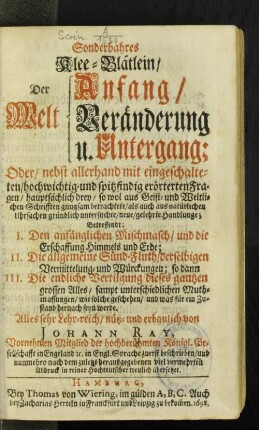 Sonderbahres
Klee-Blätlein/
Der
Welt
Anfang/
Veränderung
u. Untergang:
Oder/ nebst allerhand mit eingeschalte-
ten/hochwichtig-und spitzfindig erörterten Fra-
gen/ hauptsächlich drey/ so wol aus Geist- und Weltli-
chen Schrifften gnugsam betrachtete/als auch aus natürlichen
Uhrsachen gründlich untersuchte/neue/gelehrte Handlunge;
Betreffendt:
I. Den anfänglichen Mischmasch/ und die
Erschaffung Himmels und Erde;
II. Die allgemeine Sünd-Fluth/derselbigen
Vermittelung/ und Würckungen; so dann
III. Die endliche Vertilgung dieses gantzen
grossen Alles/ samt unterschiedlichen Muth-
massungen/ wie solche geschehen/ und was für ein Zu-
stand hernach seyn werde,
Alles sehr Lehr-reich/ nütz- und erbaulich von
JOHANN RAY,
Vornehmen Mitglied der hochberühmten Königl. Ge-
sellschafft in Engeland ec. in Engl. Sprache zuerst beschrieben/ und
nunmehro nach dem zuletzt herausgegebenen viel vermehrten
Abdruck in reiner Hochteutscher treulich übersetzet.
HAMBURG,
Bey Thomas von Wiering, im gülden A, B, C. Auch
bey Zacharias Herteln in Franckfurt und Leipzig zu bekommen. 1698.